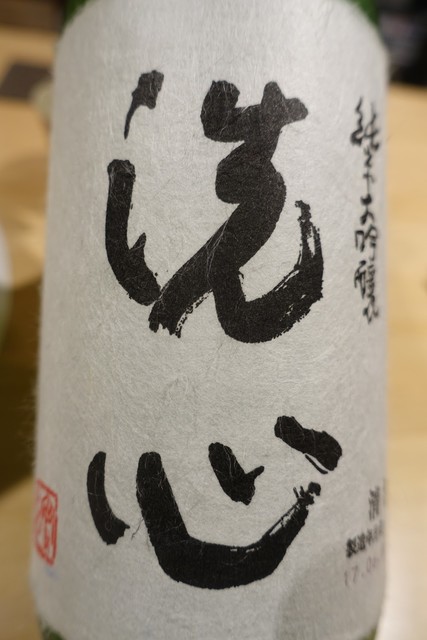 洗心
純米大吟醸
製造年月
17.0